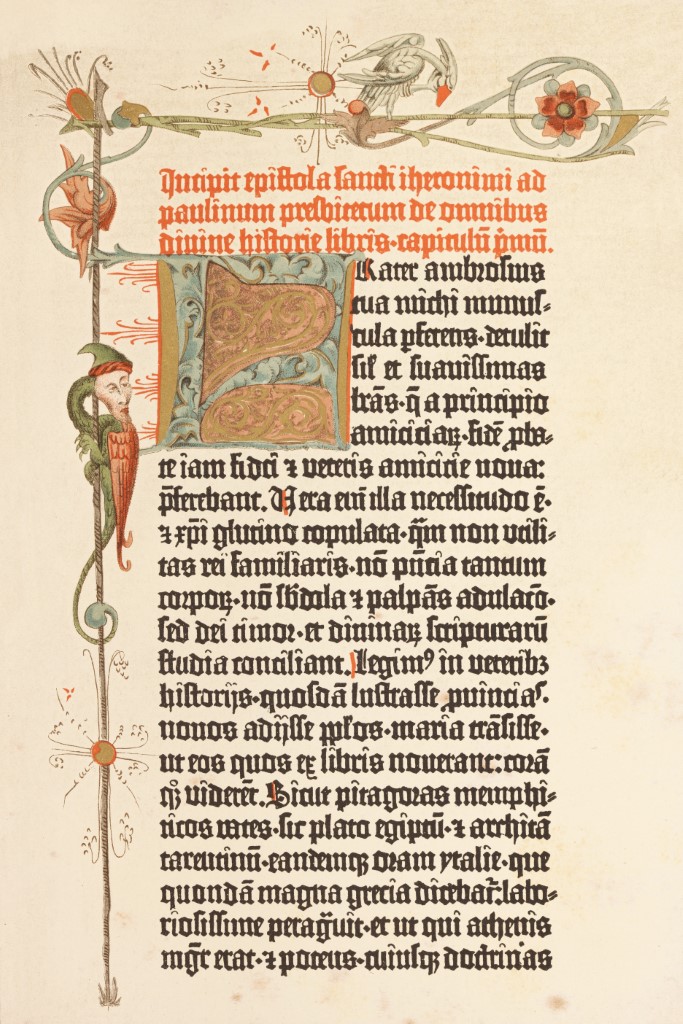 Incipit epistola sancti iheronimi ad
paulinum presbiterum de omnibus
divine historie libris·capitulū p̄mū.
FRater ambrosius
tua michi munus-
cula ꝑferens·detulit
sił et suavissimas
lr̄as·q̄ a principio
amiciciaꝝ·fidē ꝓba-
te iam fidei ⁊ veteris amicicie nova:
p̄ferebant. Vera em̄ illa necessitudo ē·
⁊ xp̄i glutino copulata·q̄m non utili-
tas rei familiaris·nō pn̄cia tantum
corpoꝝ·nō sb̄dola ⁊ palpās adulac̄o·
sed dei timor·et divinaꝝ scripturarū
studia conciliant. Legimꝰ in veteribꝫ
historijs·quosdā lustrasse ꝓvincias·
novos adijsse ppl̄os·maria trāsisse·
ut eos quos ex libris noverant: corā
qꝫ viderēt. Sicut pitagoras memphi-
ticos vates·sic plato egiptū·⁊ architā
tarentinū·eandemqꝫ oram ytalie·que
quondā magna grecia dicebat̄: labo-
riosissime peragᷓvit·et ut qui athenis
mgr̄ erat·⁊ potens·cuiusqꝫ doctrinas